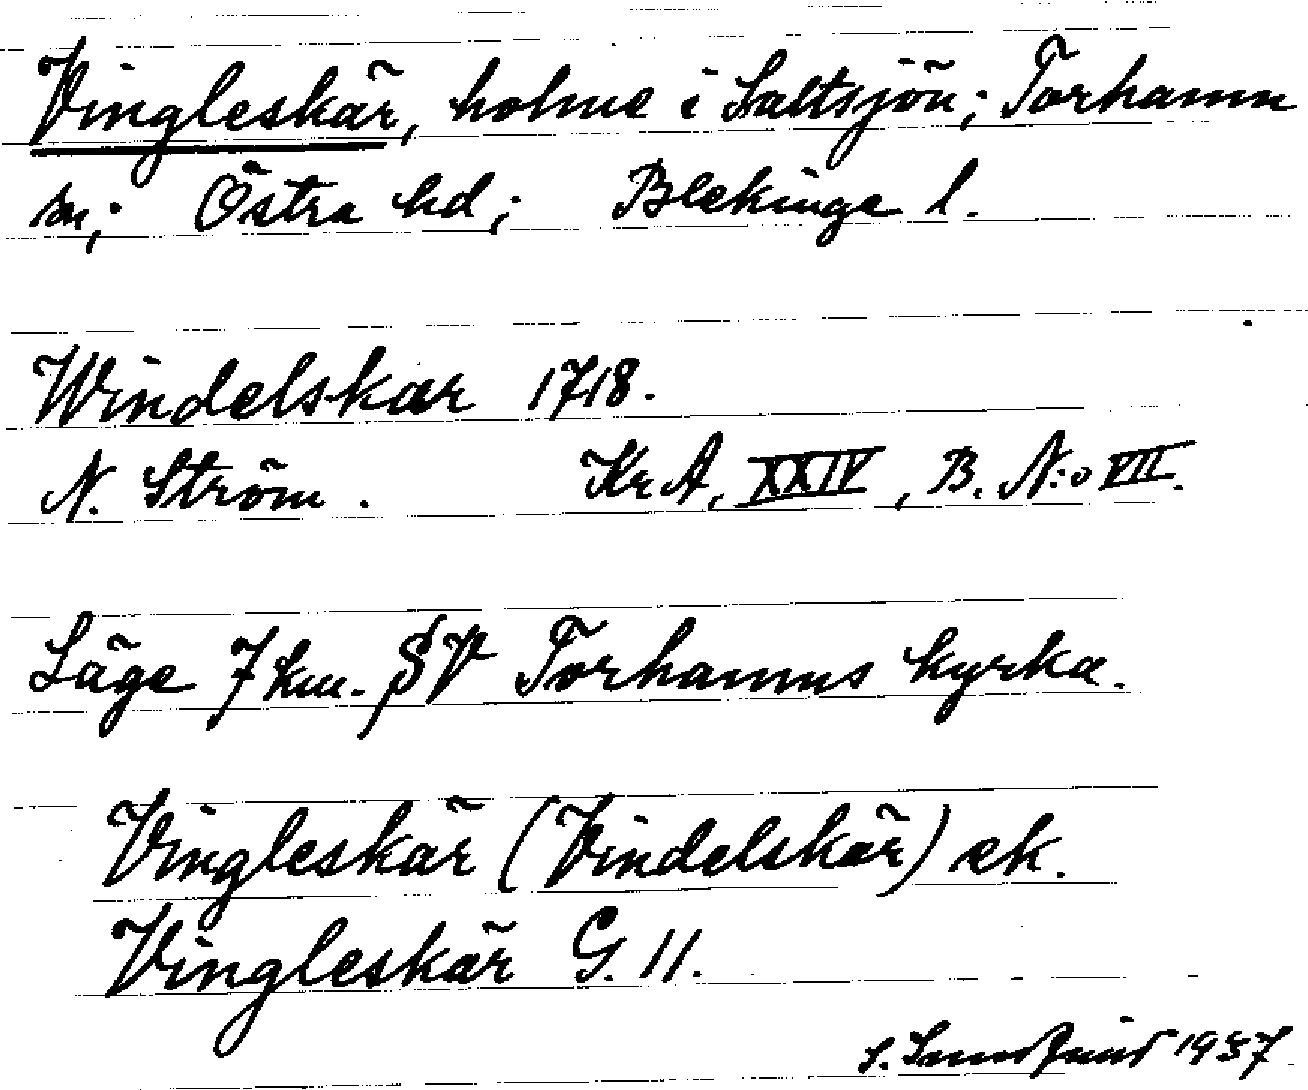 Vingleskär, holme i Saltsjön; Torhamn
sn; Östra hd; Blekinge l.
Windelskar 1718.
N. Ström. Kr A, XXIV, B. N:o VII.
Läge 7 km. SV Torhamns kyrka.
Vingleskär (Vindelskär) ek.
Vingleskär G. 11.
S. 1937